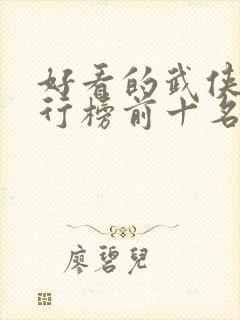 好看的武侠
行榜前十名
廖碧兒